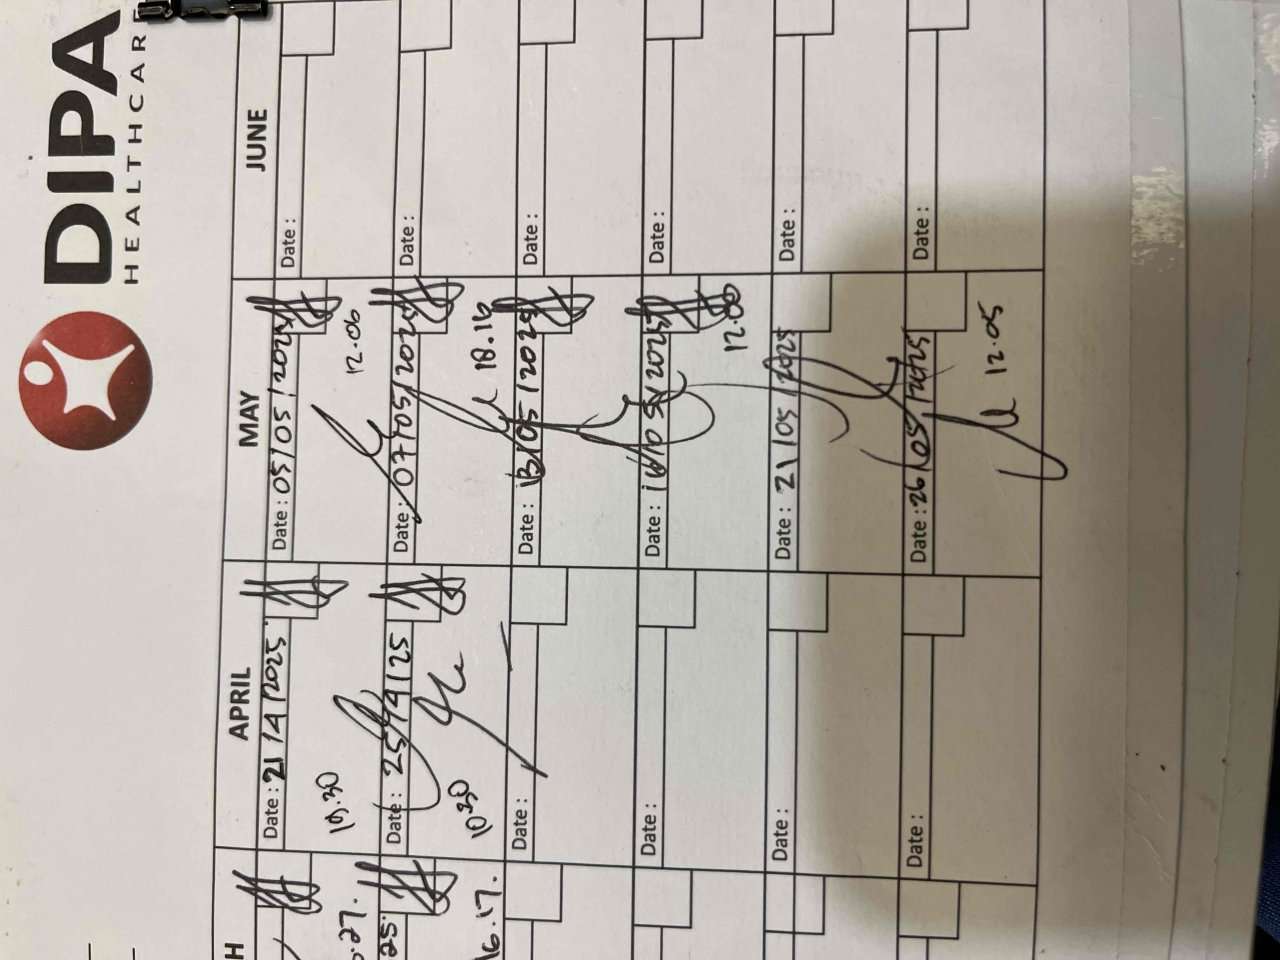 DIPA
HEALTHCARE
H APRIL MAY JUNE
Date : 21/4/2025 Date : 05/05/2025 Date :
.27. 10.30 12.06
25. Date : 25/4/25 Date : 07/05/2025 Date :
6.17. 10.30 18.16
Date : Date : 13/05/2025 Date :
Date : Date : 16/05/2025 Date :
12.00
Date : Date : 21/05/2025 Date :
Date : Date : 26/05/2025 Date :
12.05